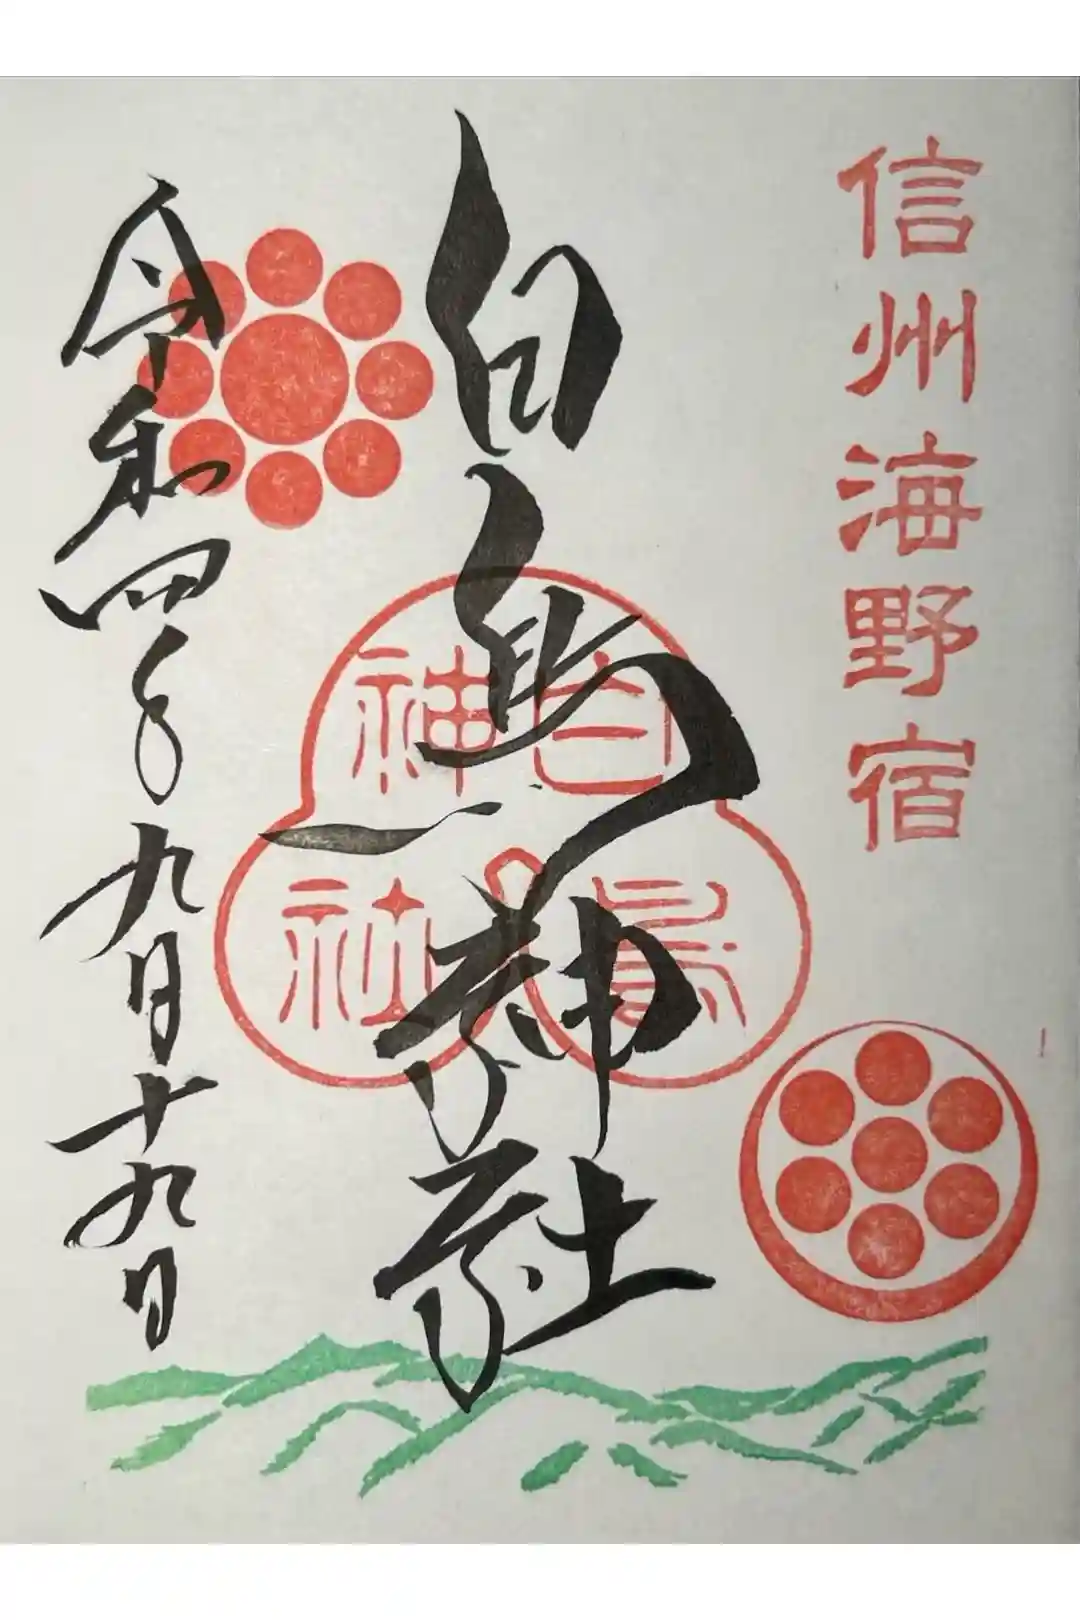 信州海野宿
白鳥神社
白鳥神社
令和四年九月十九日